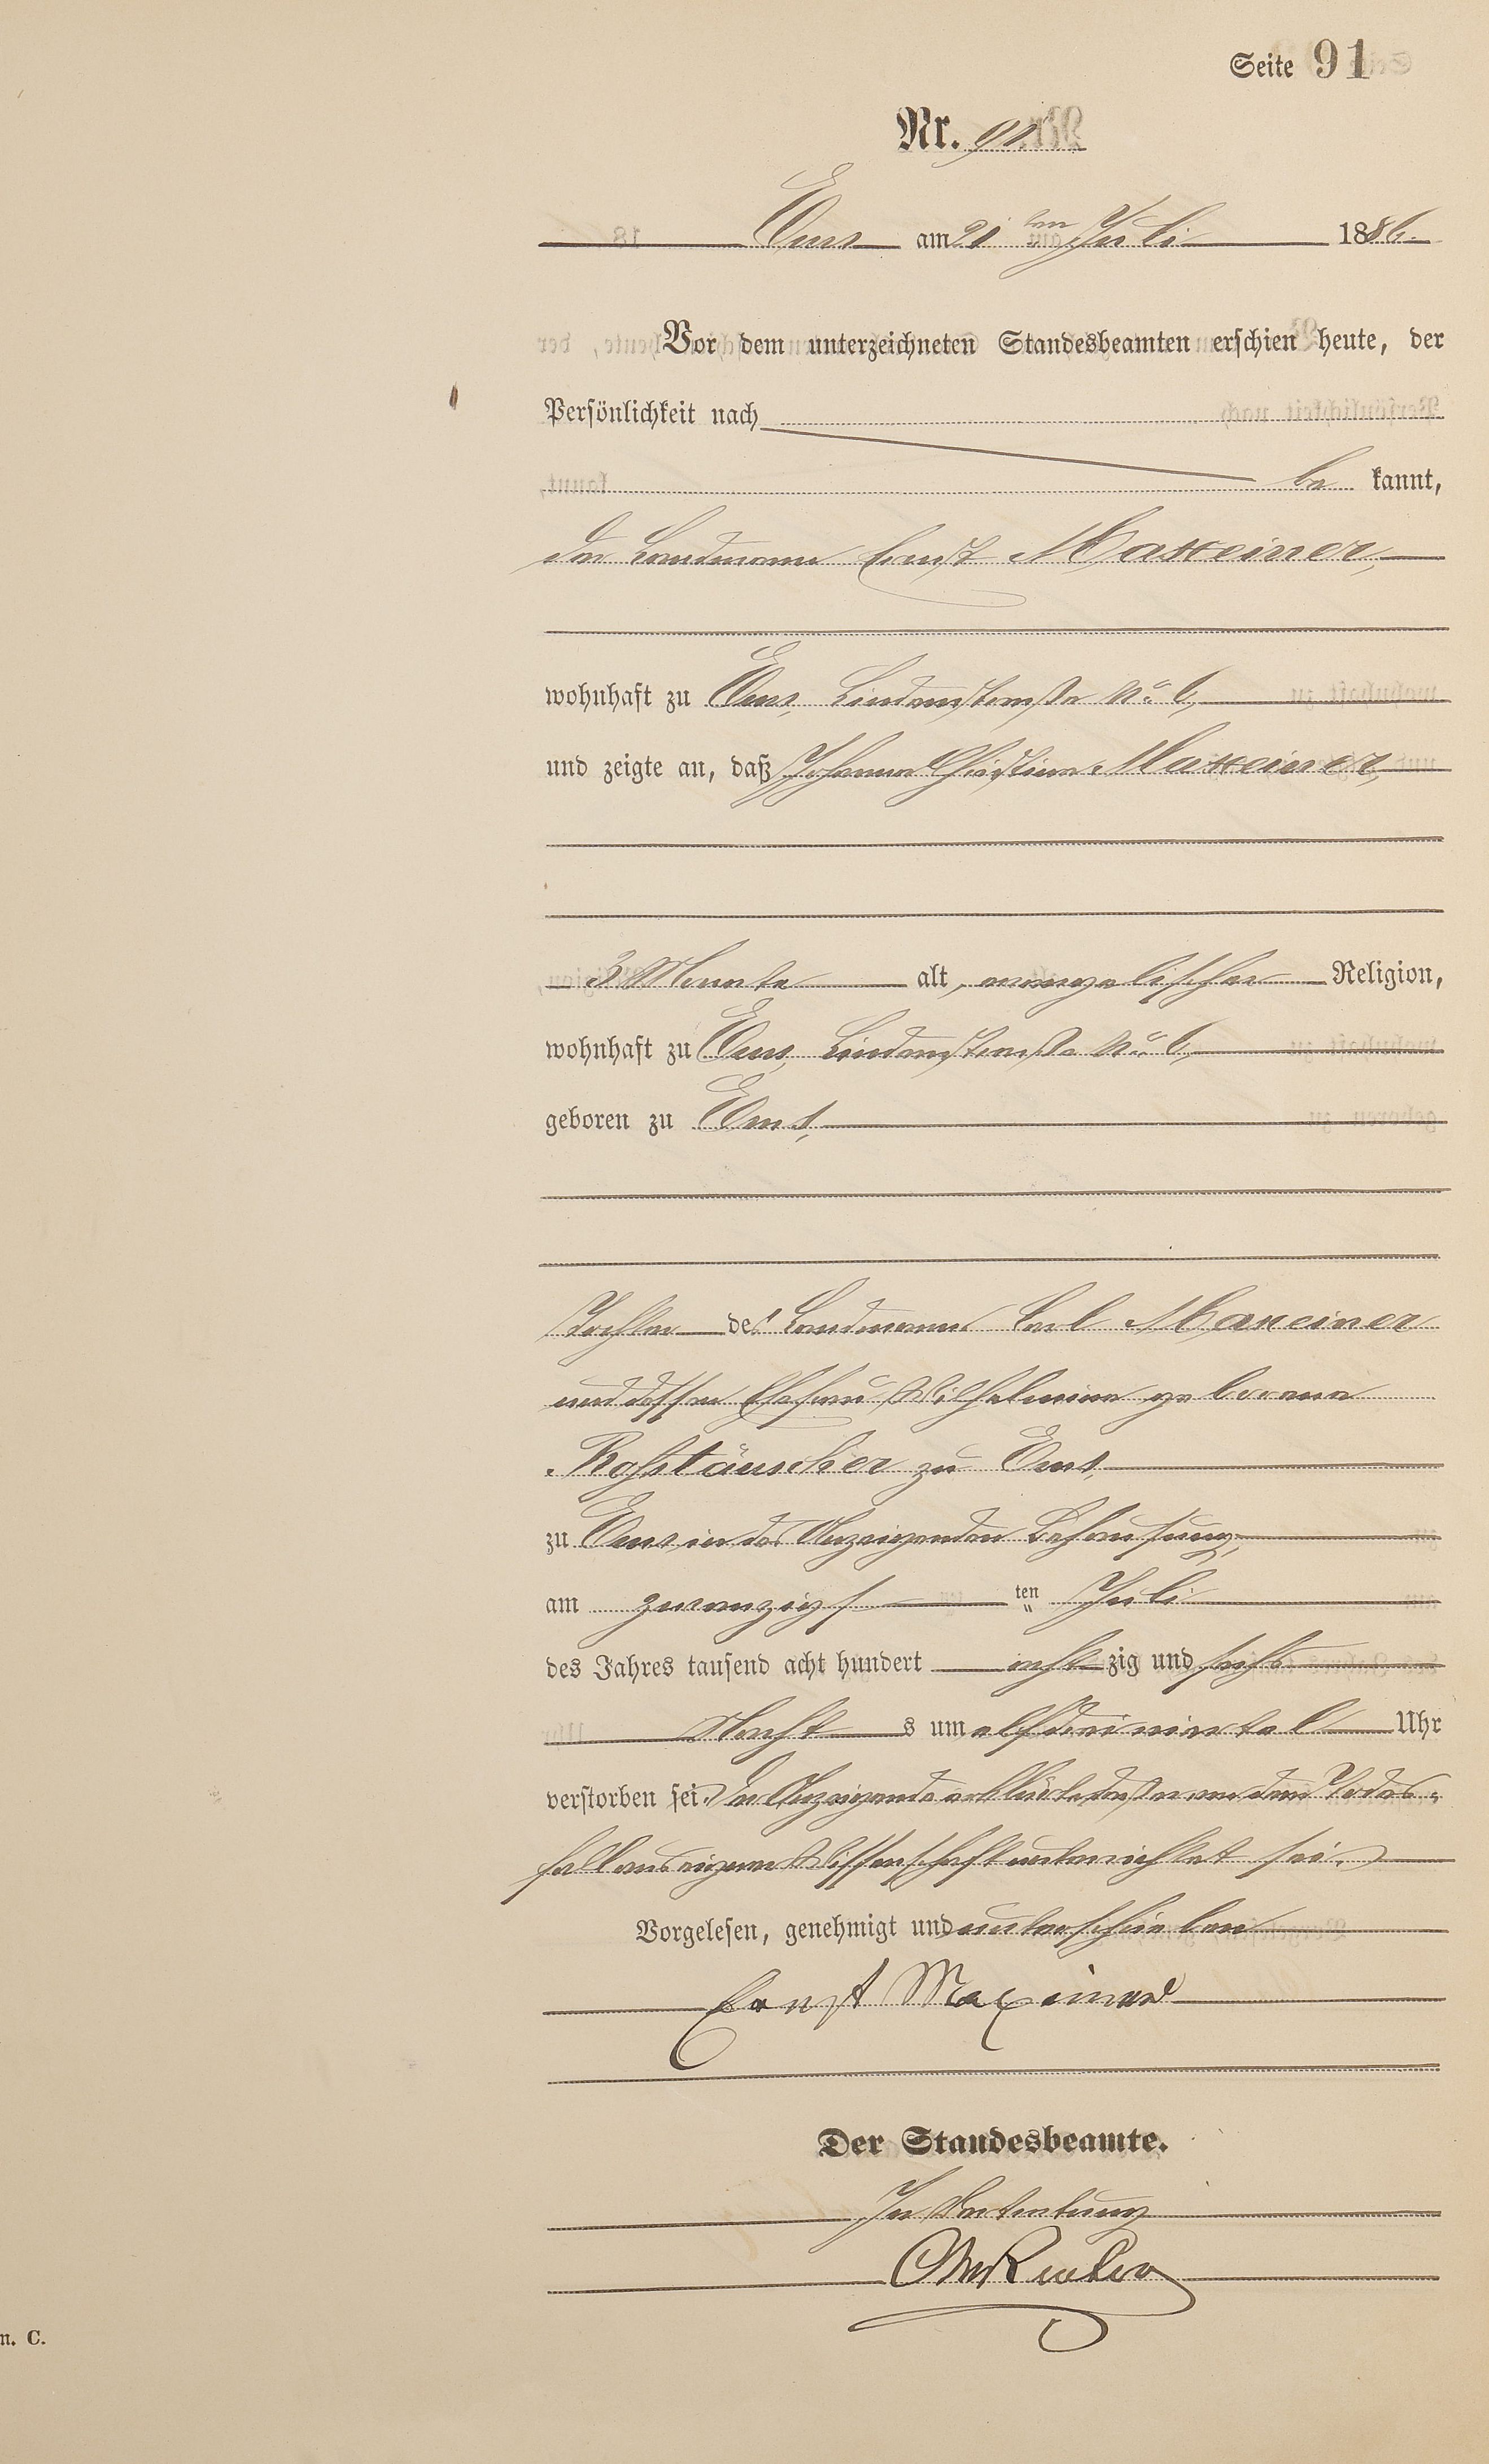 Seite 91
Nr. 91.
Ems am 21 ten Juli 1886.
Vor dem unterzeichneten Standesbeamten erschien heute, der
Persönlichkeit nach
be kannt,
der Landmann Ernst Maxeiner,
wohnhaft zu Ems, Lindenstraße No. 6,
und zeigte an, daß Johanna Christine Maxeiner,
3 Monate alt, evangelischer Religion,
wohnhaft zu Ems, Lindenstraße No. 6,
geboren zu Ems,
Tochter des Landmanns Carl Maxeiner
und dessen Ehefrau Wilhelmine geborene
Roßtäuscher zu Ems,
zu Ems, in des Anzeigenden Behausung,
am zwanzigs ten Juli
des Jahres tausend acht hundert acht zig und sechs
Nacht s um elf dreiviertel Uhr
verstorben sei. Der Anzeigende erklärte, daß er von dem Todes-
fall aus eigener Wissenschaft unterrichtet sei.
Vorgelesen, genehmigt und unterschrieben
Ernst Maxeiner
Der Standesbeamte.
In Vertretung
n. C.